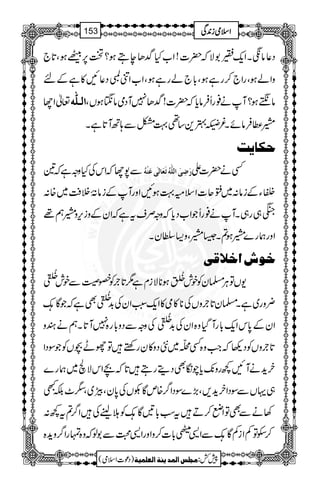 اسلامی زندگی
153
دعا مانگی۔ ایک فقیر بولا کہ حضرت! اب کیا گدھا چاہتے ہو؟ تخت پر بیٹھے ہو، تاج
والے ہو، راج کر رہے ہو، باج لے رہے ہو، اب اتنی لمبی دعائیں کاہے کے لئے
مانگتے ہو؟ آپ نے فوراً فرمایا کہ حضرت! گدھا نہیں آدمی مانگتا ہوں، اللّٰہ تعالیٰ اچھا
مشیر عطا فرمائے۔ غرضیکہ بہترین ساتھی بہت مشکل سے ہاتھ آتا ہے۔
حکایت
کسی نے حضرت علی رَضِیَ اللّٰہُ تَعَالٰی عَنْہُ سے پوچھا کہ اس کی کیا وجہ ہے کہ تین
خلفاء کے زمانہ میں فتوحات اسلامیہ بہت ہوئیں اور آپ کے زمانۂ خلافت میں خانہ
جنگی ہی رہی۔ آپ نے فوراً جواب دیا کہ وجہ صرف یہ ہے کہ ان کے وزیر و مشیر ہم تھے
اور ہمارے مشیر ہو تم۔ جیسا مشیر، ویسا سلطان۔
خوش اخلاقی
یوں تو ہر مسلمان کو خوش خُلق ہونا لازم ہے مگر تاجر کو خصوصیت سے خوش خُلقی
ضروری ہے۔ مسلمان تاجروں کی ناکامی کا ایک سبب ان کی بدخُلقی بھی ہے کہ جو گاہک
ان کے پاس ایک بار آ گیا وہ ان کی بدخُلقی کی وجہ سے دوبارہ نہیں آتا۔ ہم نے ہندو
تاجروں کو دیکھا کہ جب وہ کسی محلہ میں نئی دکان رکھتے ہیں تو چھوٹے بچوں کو جو سودا
خریدنے آئیں کچھ روک یا چونگا بھی دیتے رہتے ہیں تا کہ بچے اس لالچ میں ہمارے
ہی یہاں سے سودا خریدیں، بڑے سوداگر خاص گاہکوں کی پان، بیڑی، سگرٹ، بلکہ کبھی
کھانے سے بھی تواضع کرتے ہیں یہ سب باتیں گاہک کو ہلا لینے کی ہیں اگر تم یہ کچھ نہ
کر سکو تو کم از کم گاہک سے ایسی میٹھی بات کرو اور ایسی محبت سے بولو کہ وہ تمہارا گرویدہ
پیش کش: مجلس المدینۃ العلمیۃ (دعوتِ اسلامی)